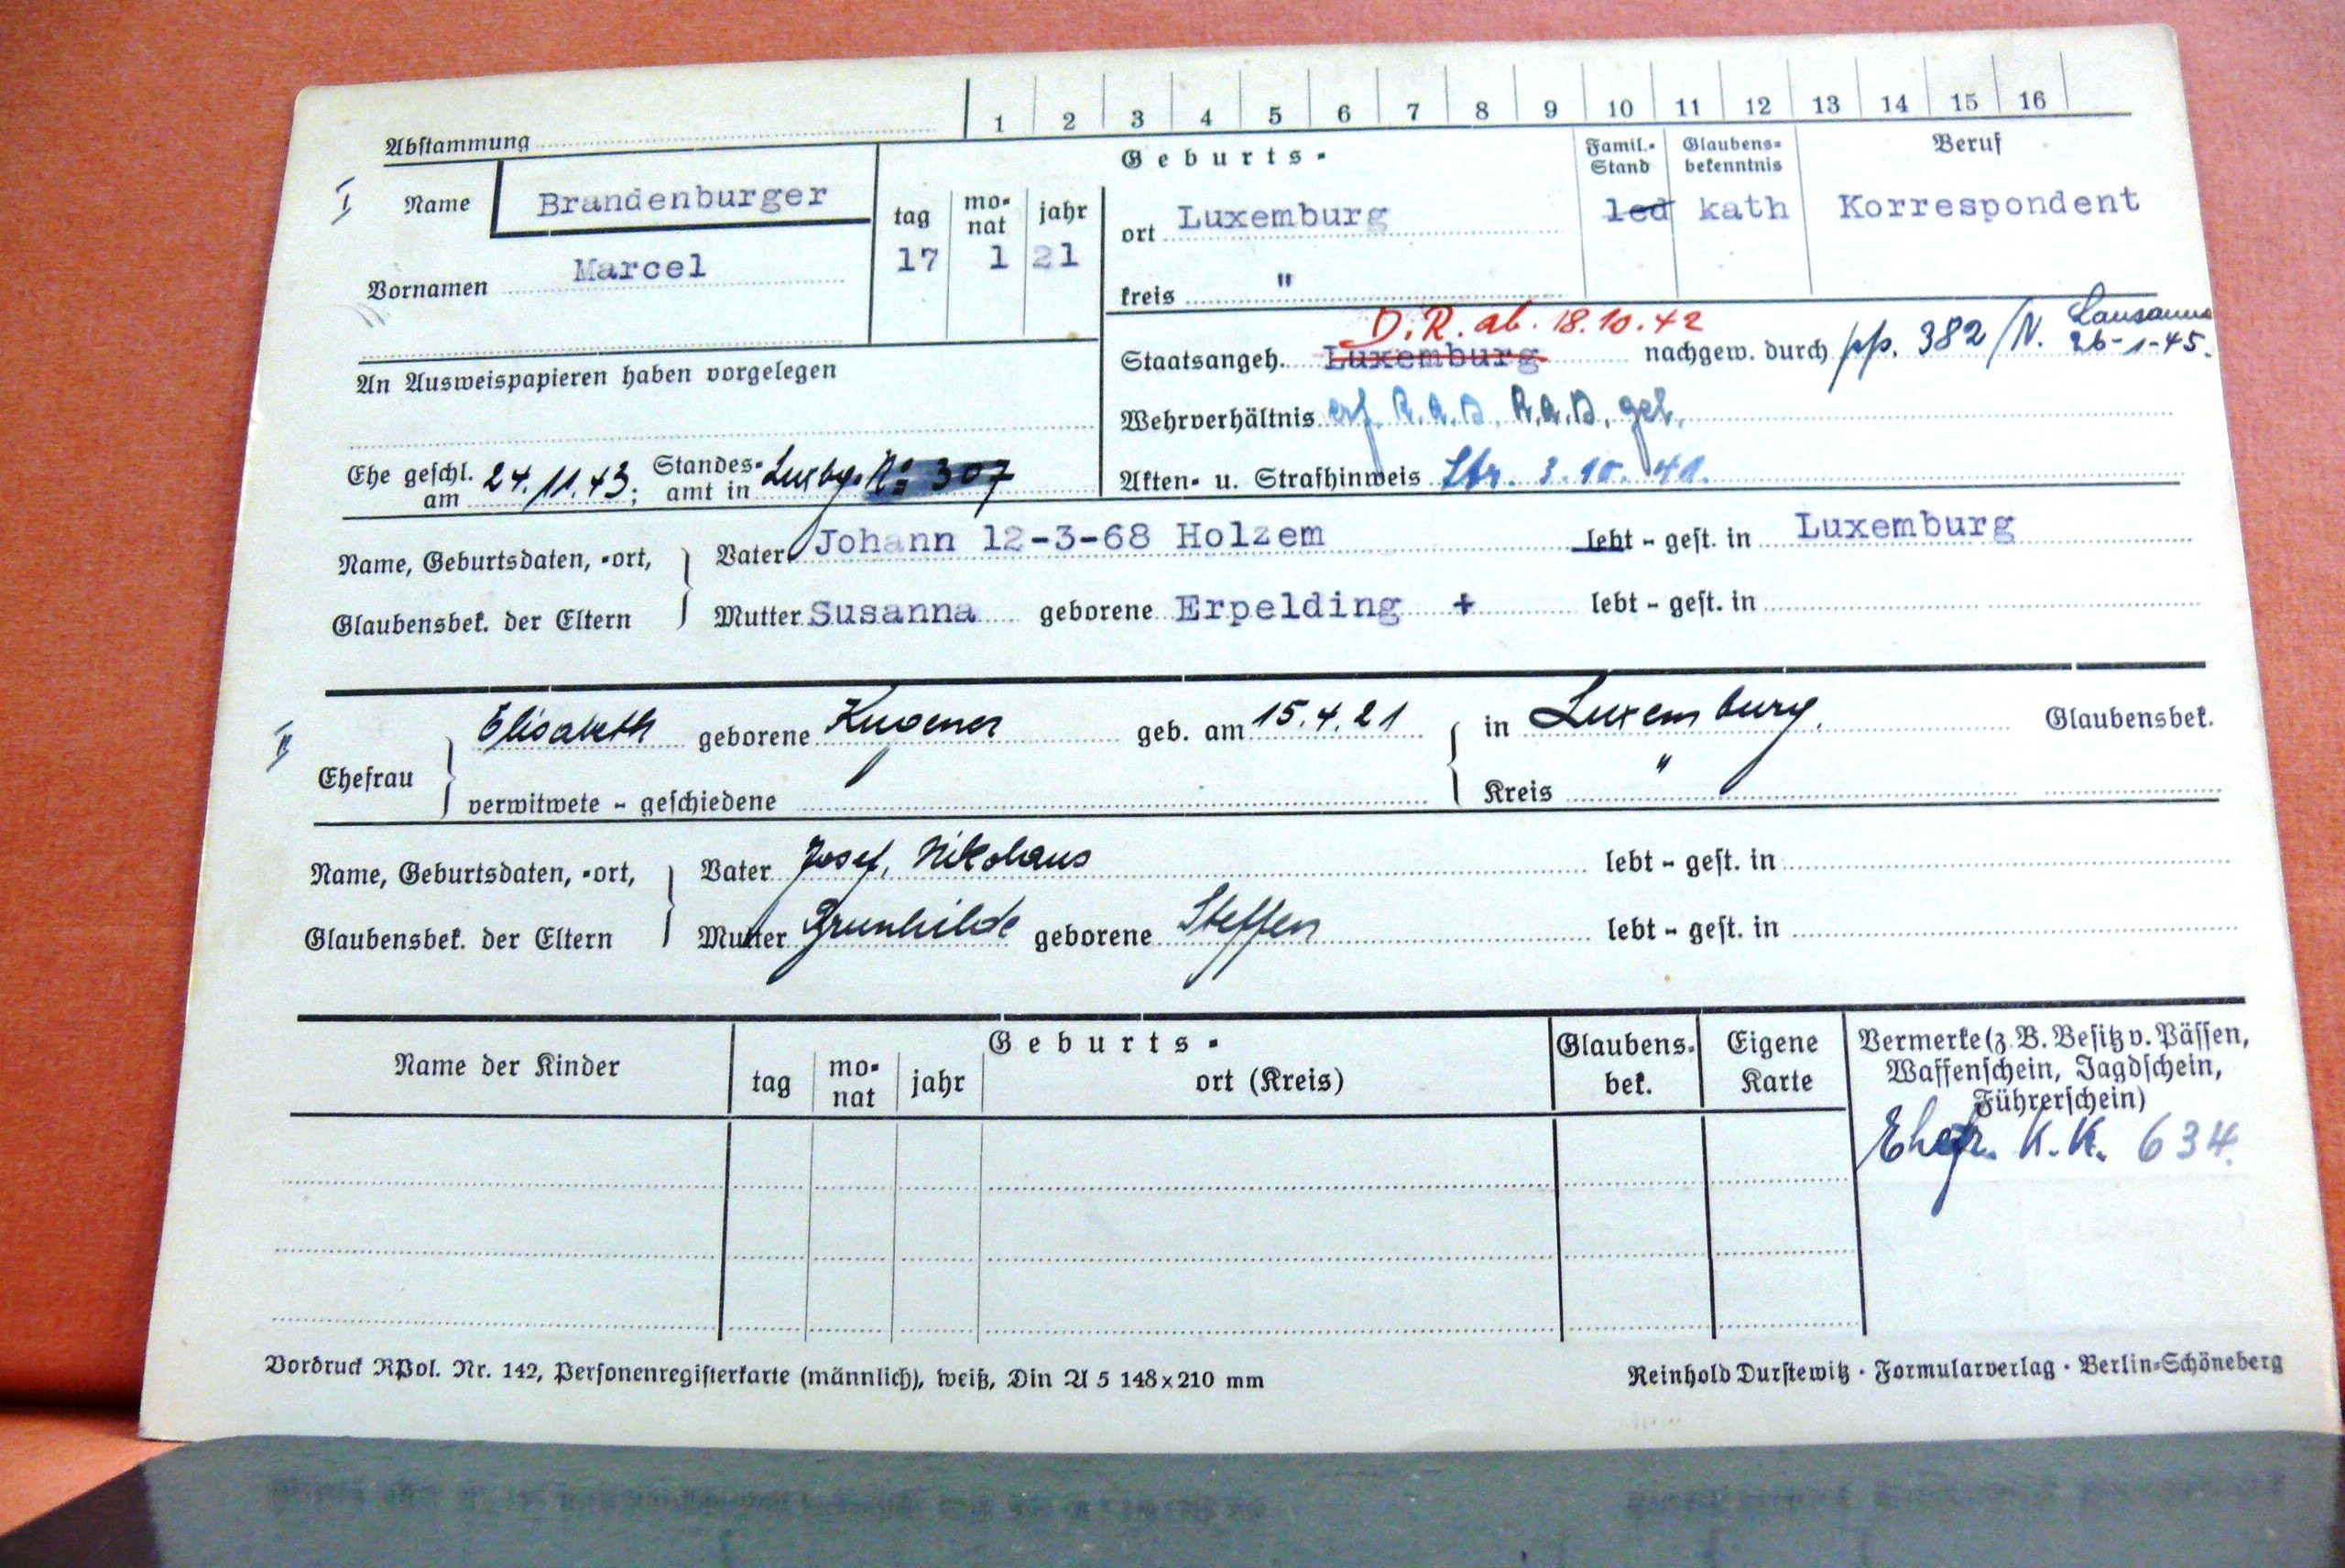 1 2 3 4 5 6 7 8 9 10 11 12 13 14 15 16
Abstammung
I
Name Brandenburger
Vornamen Marcel
Geburts-
tag monat jahr
17 1 21
ort Luxemburg
kreis "
Famil.-Stand
led
Glaubens-bekenntnis
kath
Beruf
Korrespondent
D.R. ab. 18.10.42
Staatsangeh. Luxemburg nachgew. durch pp. 382/N. Lausanne 26-1-45.
An Ausweispapieren haben vorgelegen
Wehrverhältnis erf. R.A.D. R.A.D. gel.
Ehe geschl. am 24.11.43; Standes-amt in Luxbg. No 307
Akten- u. Strafhinweis Str. 3.10.41.
Name, Geburtsdaten, -ort, Vater Johann 12-3-68 Holzem lebt - gest. in Luxemburg
Glaubensbek. der Eltern Mutter Susanna geborene Erpelding + lebt - gest. in
II
Ehefrau Elisabeth geborene Kugener geb. am 15.4.21 in Luxemburg. Glaubensbek.
verwitwete - geschiedene Kreis "
Name, Geburtsdaten, -ort, Vater Josef, Nikolaus lebt - gest. in
Glaubensbek. der Eltern Mutter Brunhilde geborene Steffen lebt - gest. in
Name der Kinder
Geburts-
tag monat jahr ort (Kreis)
Glaubens-bek.
Eigene Karte
Vermerke (z. B. Besitz v. Pässen,
Waffenschein, Jagdschein,
Führerschein)
Ehefr. K.K. 634.
Vordruck RPol. Nr. 142, Personenregisterkarte (männlich), weiß, Din A 5 148x210 mm
Reinhold Durstewitz · Formularverlag · Berlin-Schöneberg